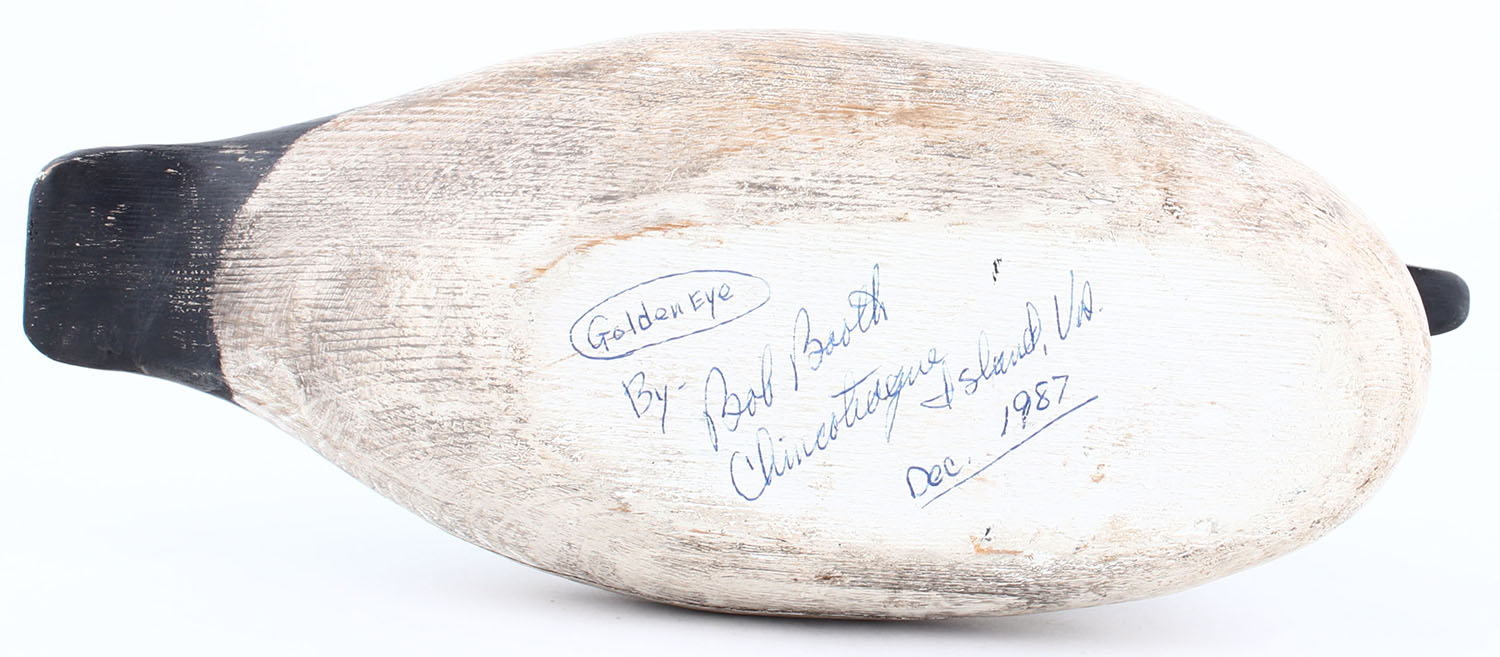 Golden Eye
By- Bob Booth
Chincoteague Island, Va.
Dec.. 1987